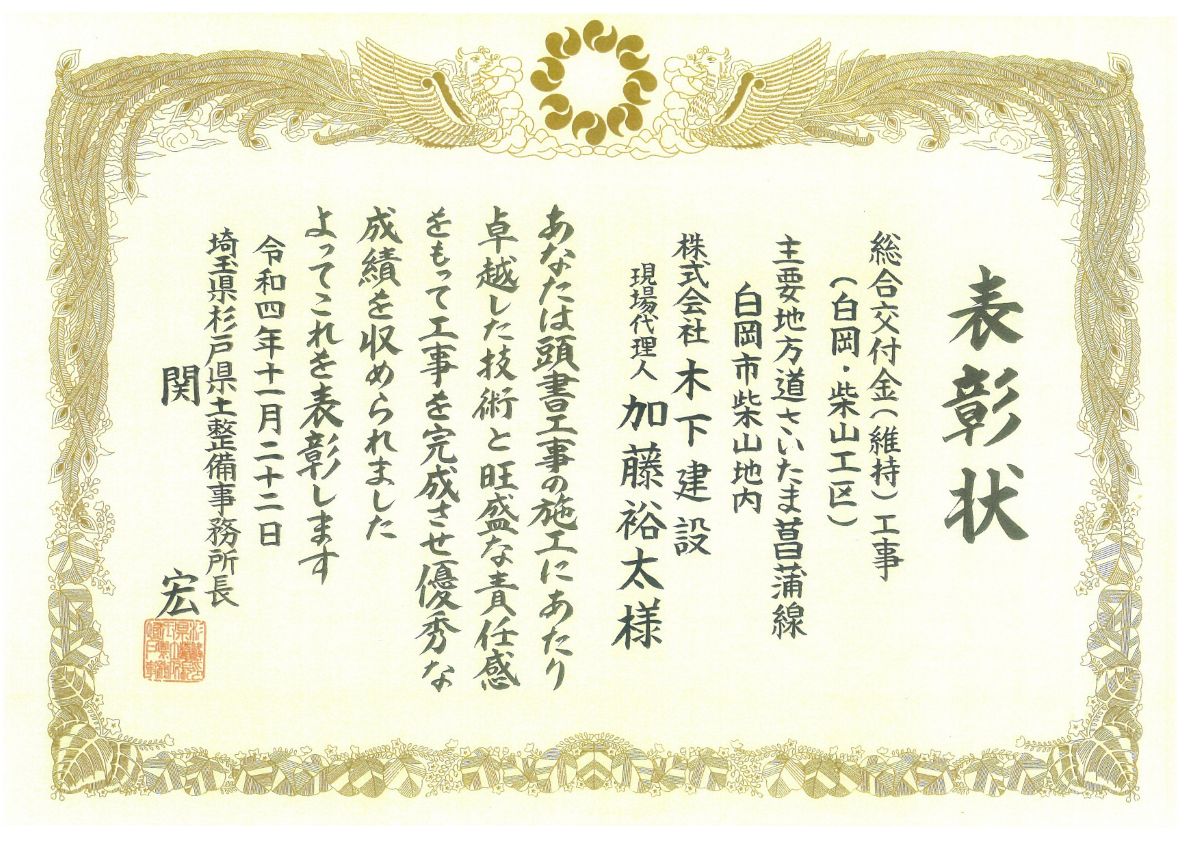 表彰状
総合交付金(維持)工事
(白岡・柴山工区)
主要地方道さいたま菖蒲線
白岡市柴山地内
株式会社 木下建設
現場代理人 加藤裕太様
あなたは頭書工事の施工にあたり
卓越した技術と旺盛な責任感
をもって工事を完成させ優秀な
成績を収められました
よってこれを表彰します
令和四年十一月二十二日
埼玉県杉戸県土整備事務所長
関 宏